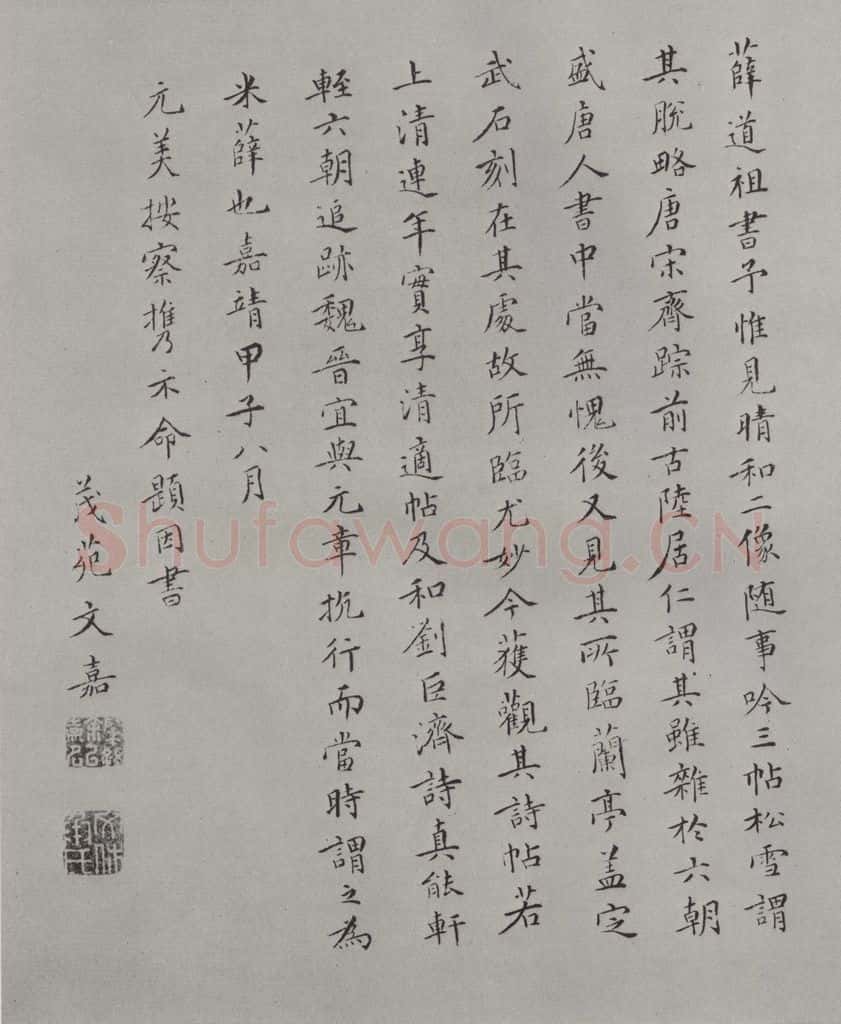 薛道祖書予惟見晴和二像随事吟三帖松雪謂
其脫略唐宋齊踪前古陸居仁謂其雖雜於六朝
盛唐人書中當無愧後又見其所臨蘭亭盖定
武石刻在其處故所臨尤妙今獲觀其詩帖若
上清連年實享清適帖及和劉巨濟詩真能軒
輊六朝追跡魏晉宜與元章抗行而當時謂之為
米薛也嘉靖甲子八月
元美按察携示命題因書
茂苑文嘉
Shufawang.CN